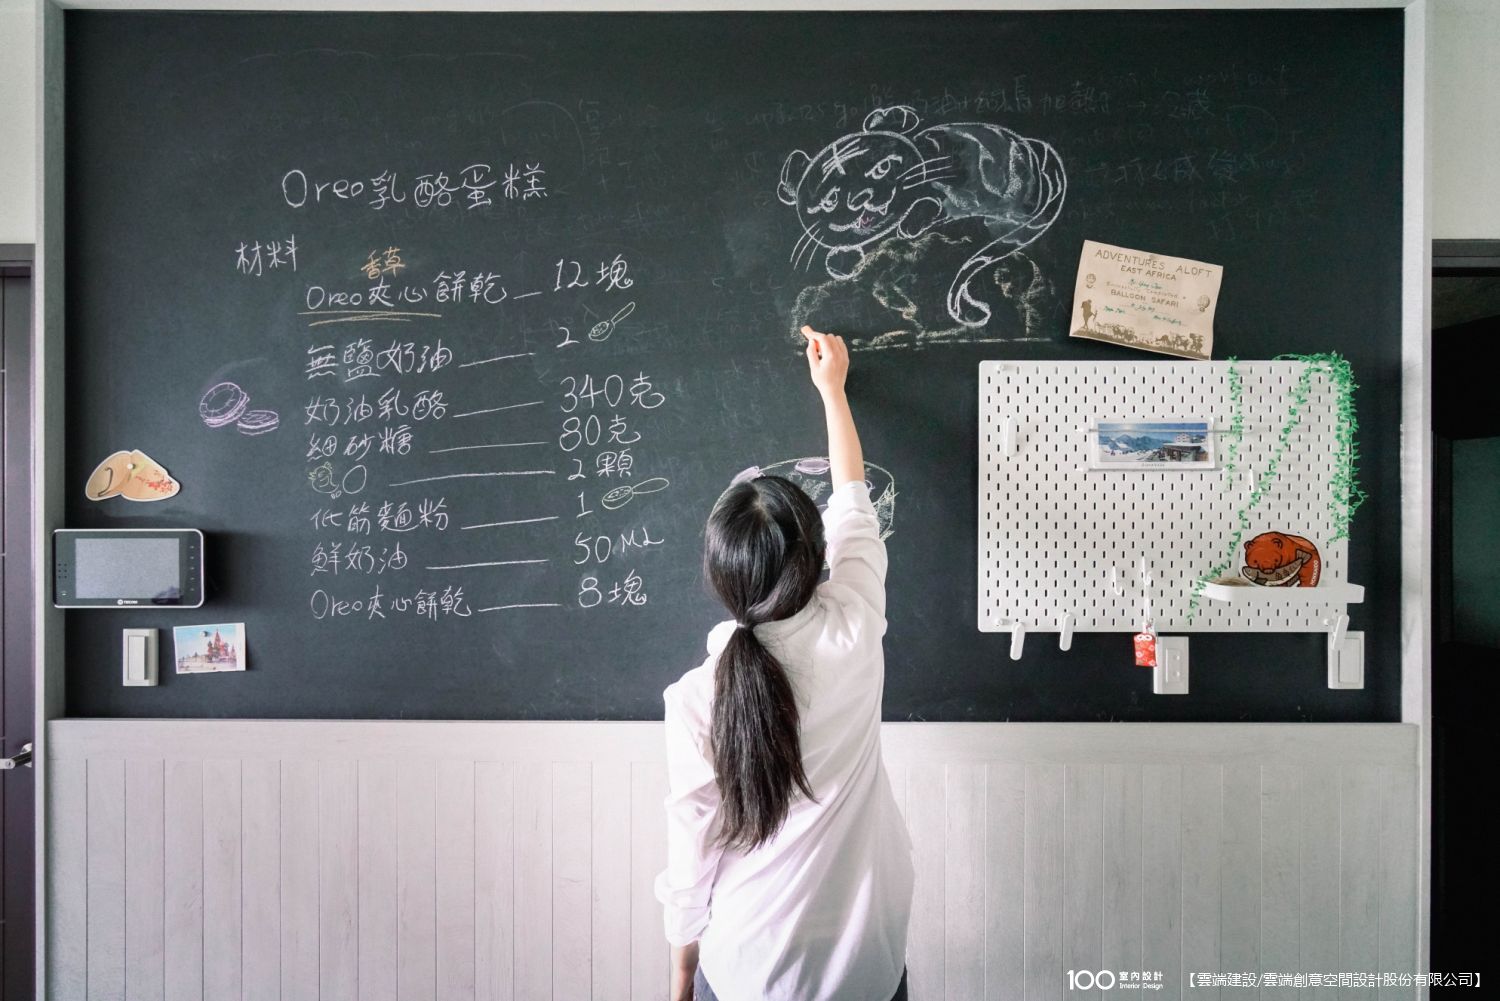 Oreo乳酪蛋糕
材料
香草
Oreo夾心餅乾 12塊
無鹽奶油 2
奶油乳酪 340克
細砂糖 80克
2顆
低筋麵粉 1
鮮奶油 50ML
Oreo夾心餅乾 8塊
ADVENTURES ALOFT
EAST AFRICA
BALLOON SAFARI
21
100 室內設計
Interior Design
【雲端建設/雲端創意空間設計股份有限公司】